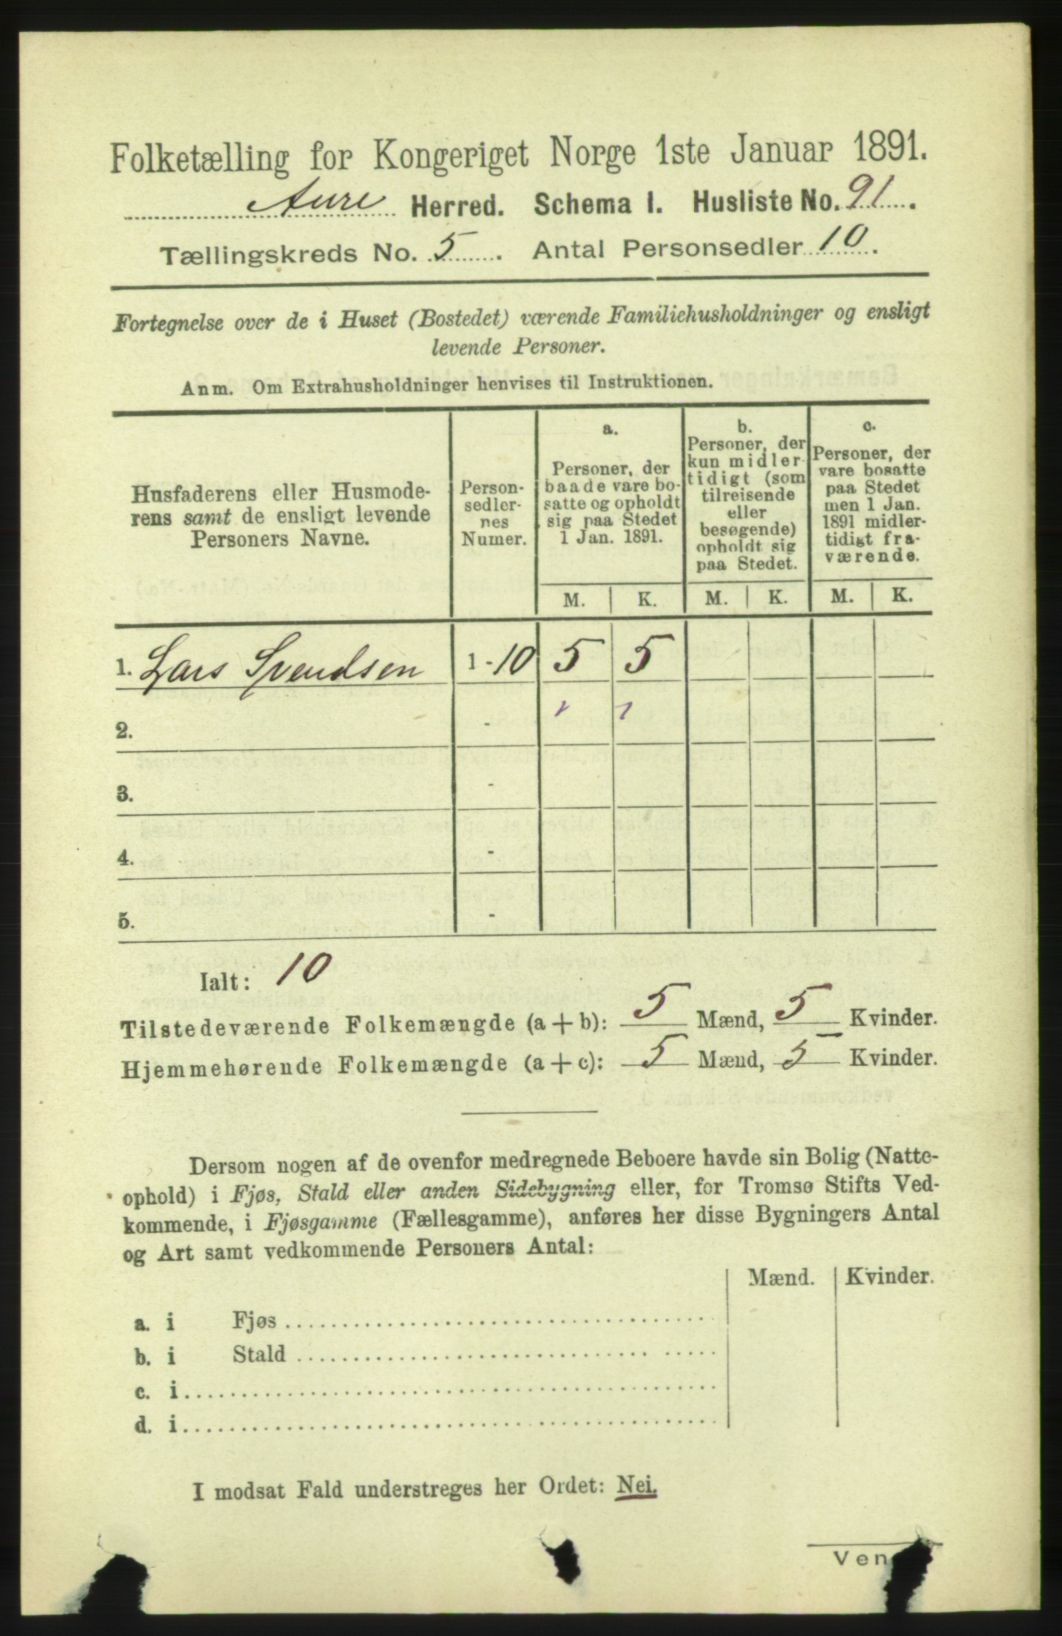 Folketælling for Kongeriget Norge 1ste Januar 1891.
Aure Herred. Schema I. Husliste No. 91.
Tællingskreds No. 5. Antal Personsedler 10.
Fortegnelse over de i Huset (Bostedet) værende Familiehusholdninger og ensligt
levende Personer.
Anm. Om Extrahusholdninger henvises til Instruktionen.
Husfaderens eller Husmode-
rens samt de ensligt levende
Personers Navne.
Person-
sedler-
nes
Numer.
a.
Personer, der
baade vare bo-
satte og opholdt
sig paa Stedet
1 Jan. 1891.
b.
Personer, der
kun midler-
tidigt (som
tilreisende
eller
besøgende)
opholdt sig
paa Stedet.
c.
Personer, der
vare bosatte
paa Stedet
men 1 Jan.
1891 midler-
tidigt fra-
værende.
M. K. M. K. M. K.
1. Lars Svendsen 1 - 10 5 5
2. -
3. -
4. -
5. -
Ialt: 10
Tilstedeværende Folkemængde (a+b): 5 Mænd, 5 Kvinder.
Hjemmehørende Folkemængde (a+c): 5 Mænd, 5 Kvinder.
Dersom nogen af de ovenfor medregnede Beboere havde sin Bolig (Natte-
ophold) i Fjøs, Stald eller anden Sidebygning eller, for Tromsø Stifts Ved-
kommende, i Fjøsgamme (Fællesgamme), anføres her disse Bygningers Antal
og Art samt vedkommende Personers Antal:
Mænd. Kvinder.
a. i Fjøs
b. i Stald
c. i
d. i
I modsat Fald understreges her Ordet: Nei.
Ven